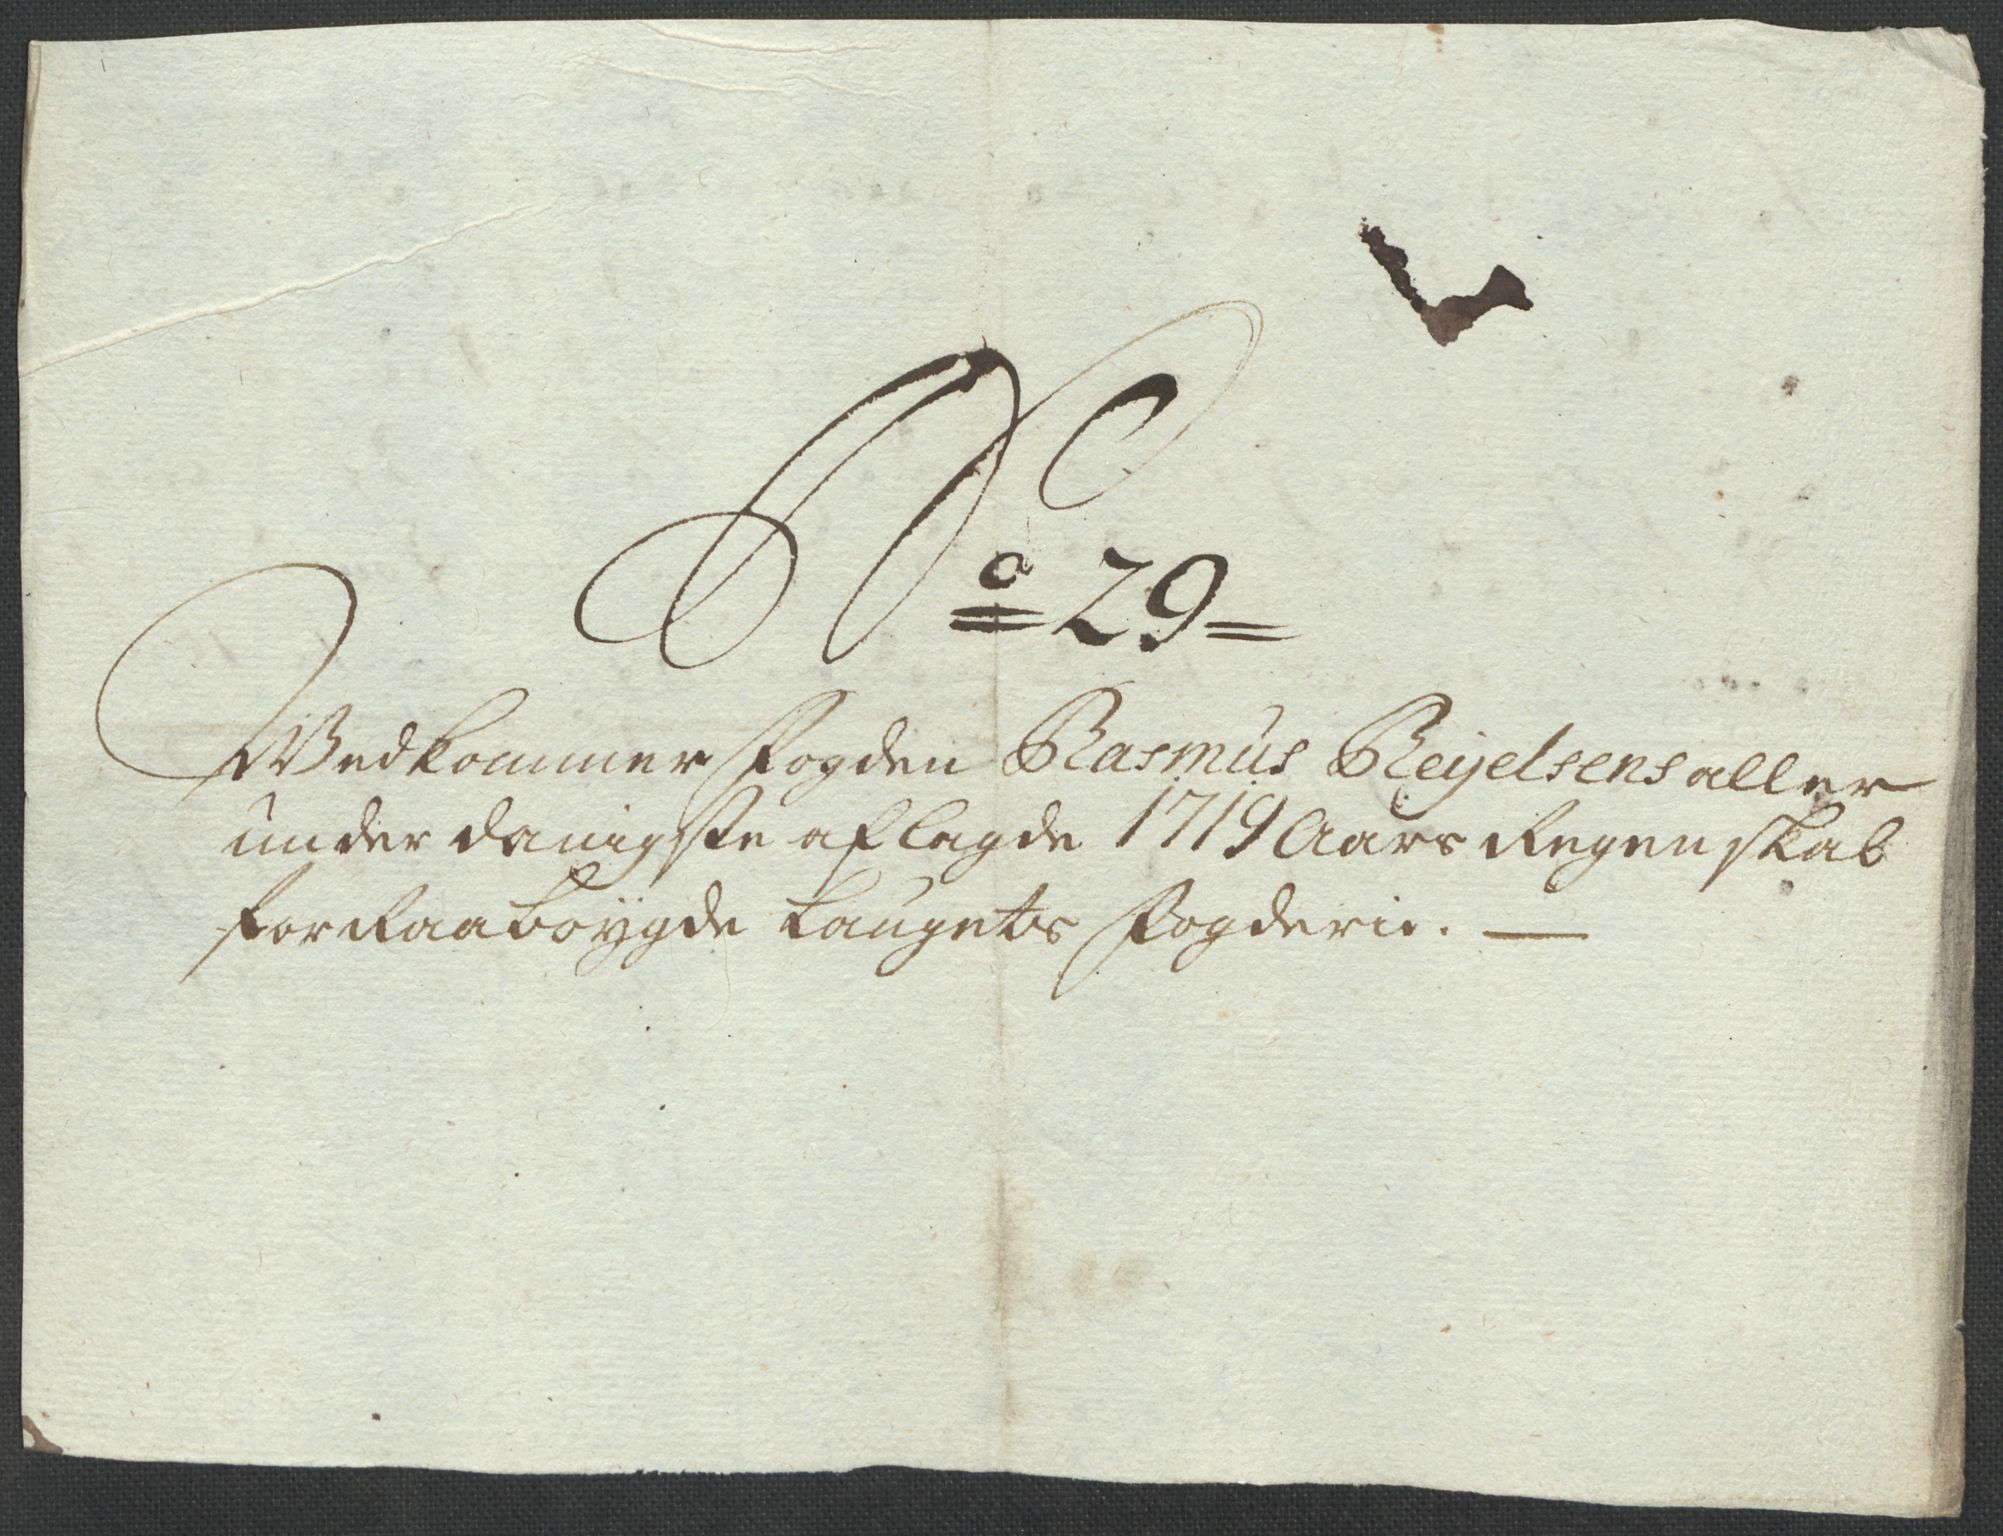 No 29
Vedkommer Fogden Rasmus Reijelsens aller
underdanigste aflagde 1719 Aars Regenskab
for Raaboygde laugets Fogderie.